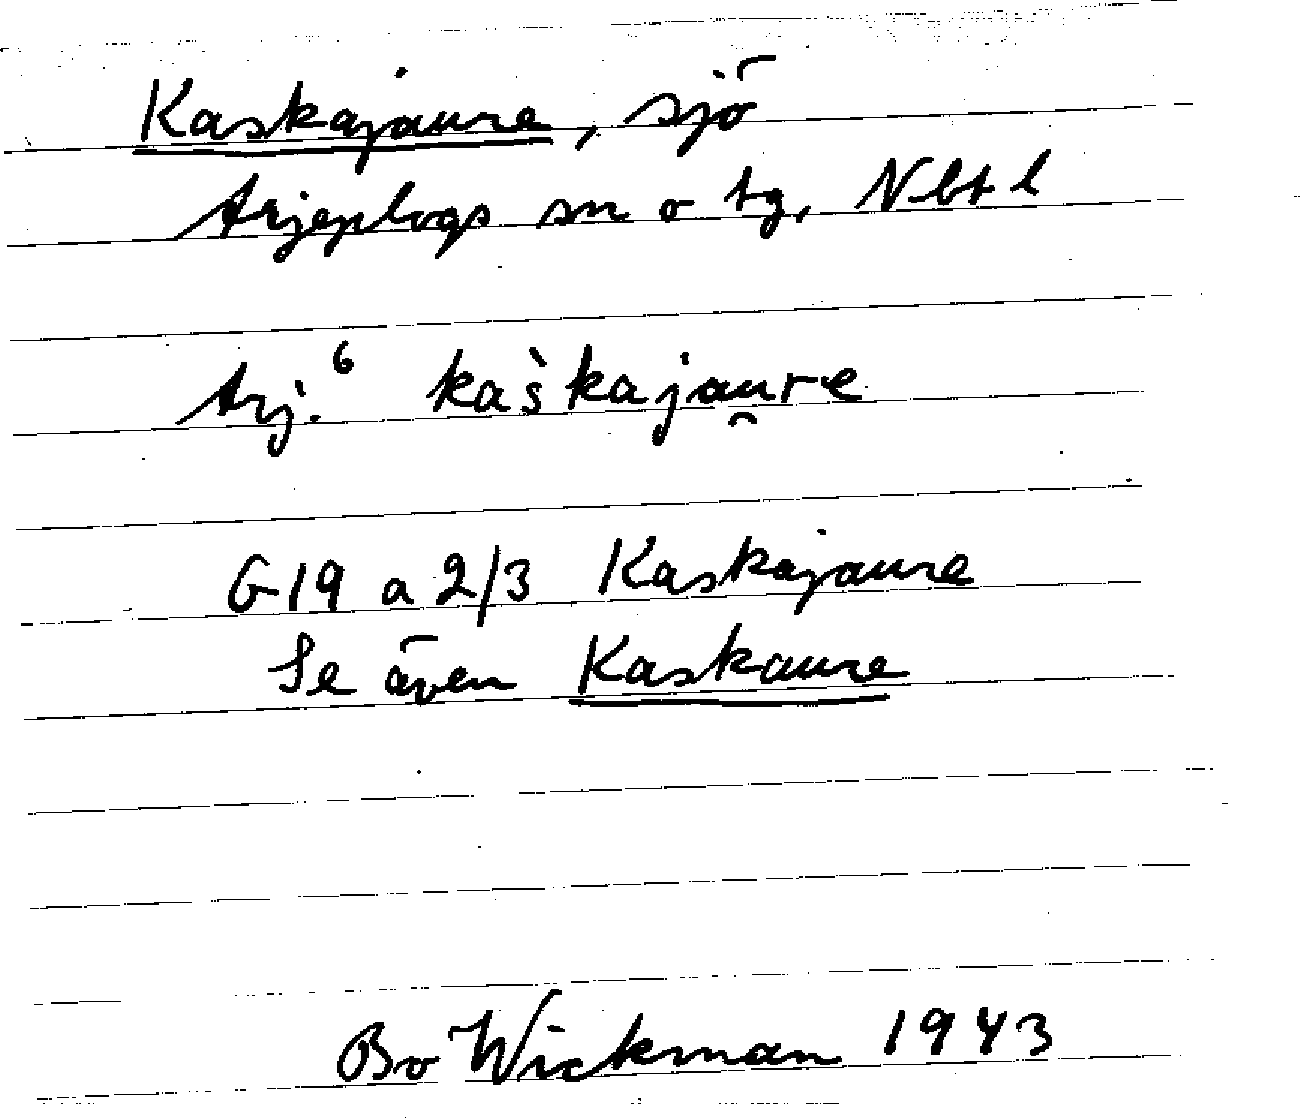 Kaskajaure, sjö
Arjeplogs sn o tg, Nbt l
Arj.⁶ kas̀kajau̯re
G 19 a 2/3 Kaskajaure
Se även Kaskaure
Bo Wickman 1943